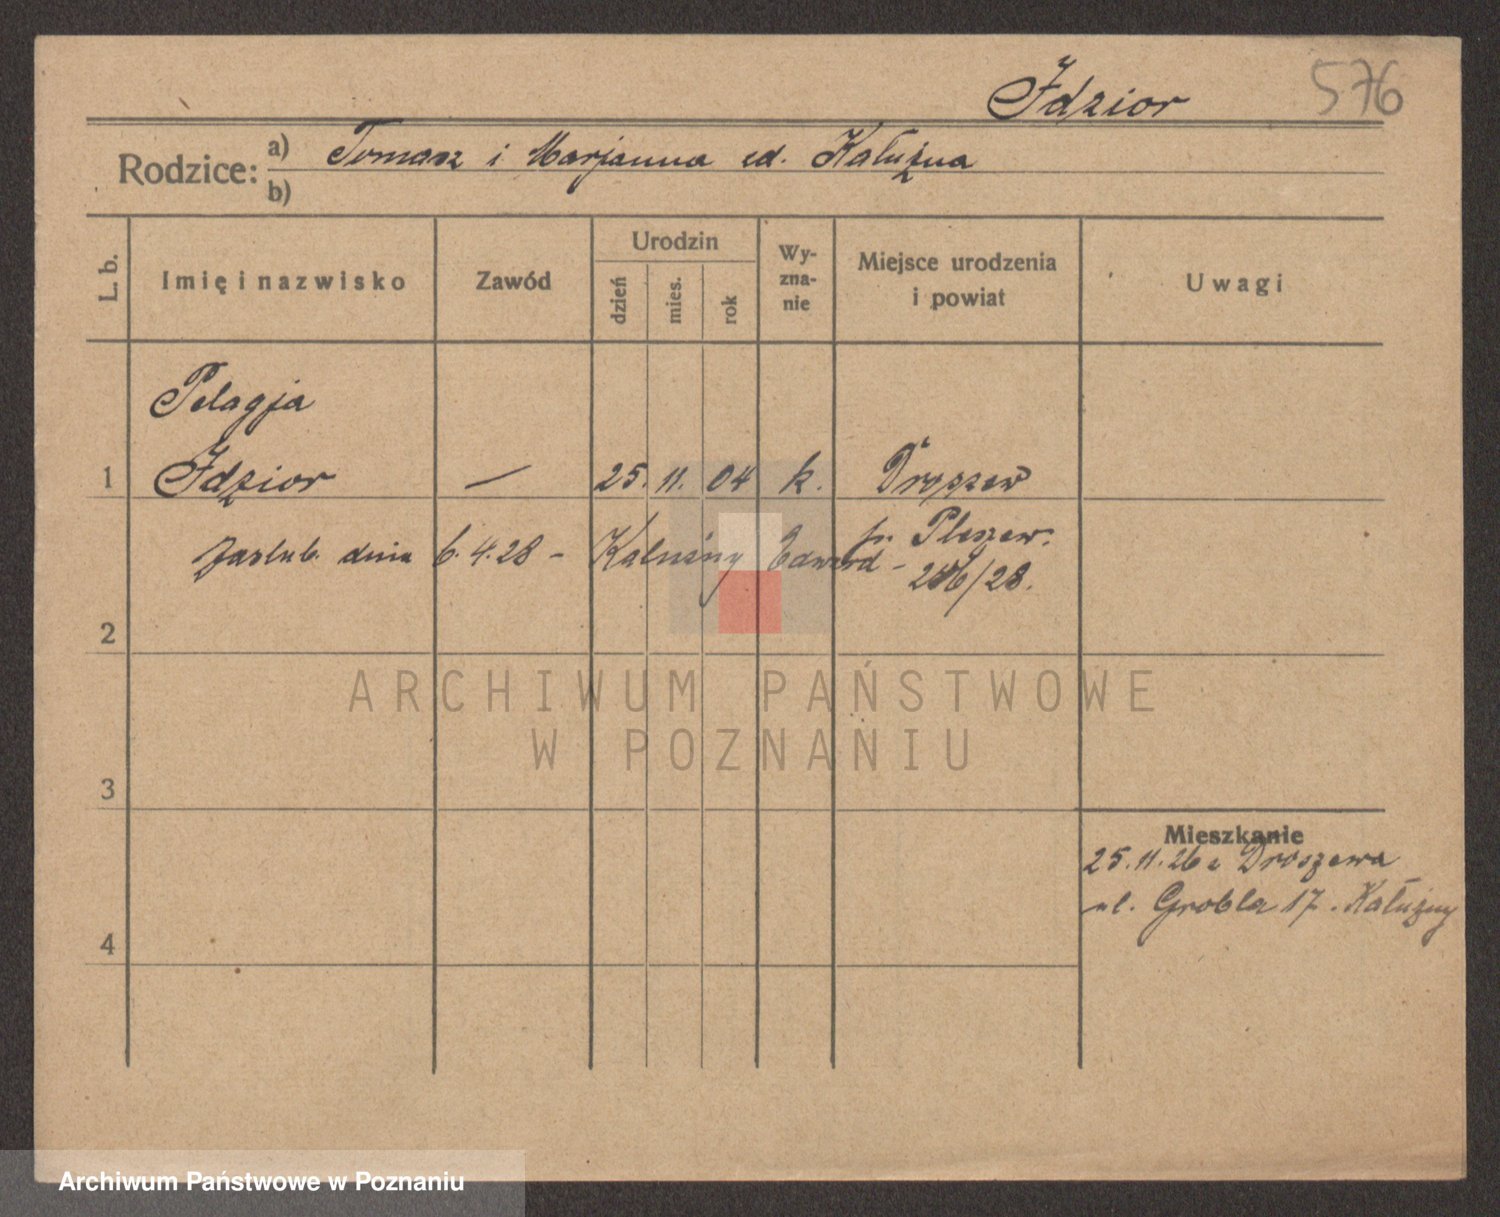 Idzior 576
Rodzice: a) Tomasz i Marjanna zd. Kałużna
b)
L. b.
Imię i nazwisko
Zawód
Urodzin
dzień
mies.
rok
Wy-
zna-
nie
Miejsce urodzenia
i powiat
Uwagi
Pelagja
1 Idzior — 25. 11. 04 k. Droszew
p. Pleszew.
zaślub. dnia 6.4.28 – Kałużny Edward –
/28.
2
3
4
Mieszkanie
25.11.26 z Droszewa
ul. Grobla 17. Kałużny
ARCHIWUM PAŃSTWOWE
W POZNANIU
Archiwum Państwowe w Poznaniu